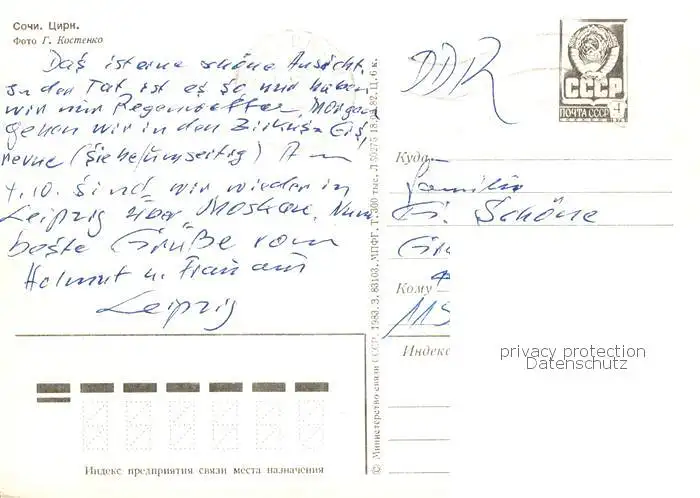 Сочи. Цирк.
Фото Г. Костенко
Das ist eine schöne Ansicht,
in der Tat ist es so, nur haben
wir nur Regenwetter, Morgen
gehen wir in den Zirkus - Eis,
revue (siehe umseitig) Am
4.10. sind wir wieder in
Leipzig über Moskau. Nun
beste Grüße vom
Helmut u. Frau aus
Leipzig
Индекс предприятия связи места назначения
© Министерство связи СССР. 1983. З. 83103. МПФГ. Т. 300 тыс. Л-50275 18.08.82. Ц. 6 к.
DDR
СССР
ПОЧТА СССР 4
Куда
Familie
G. Schöne
Кому
Индекс
privacy protection
Datenschutz